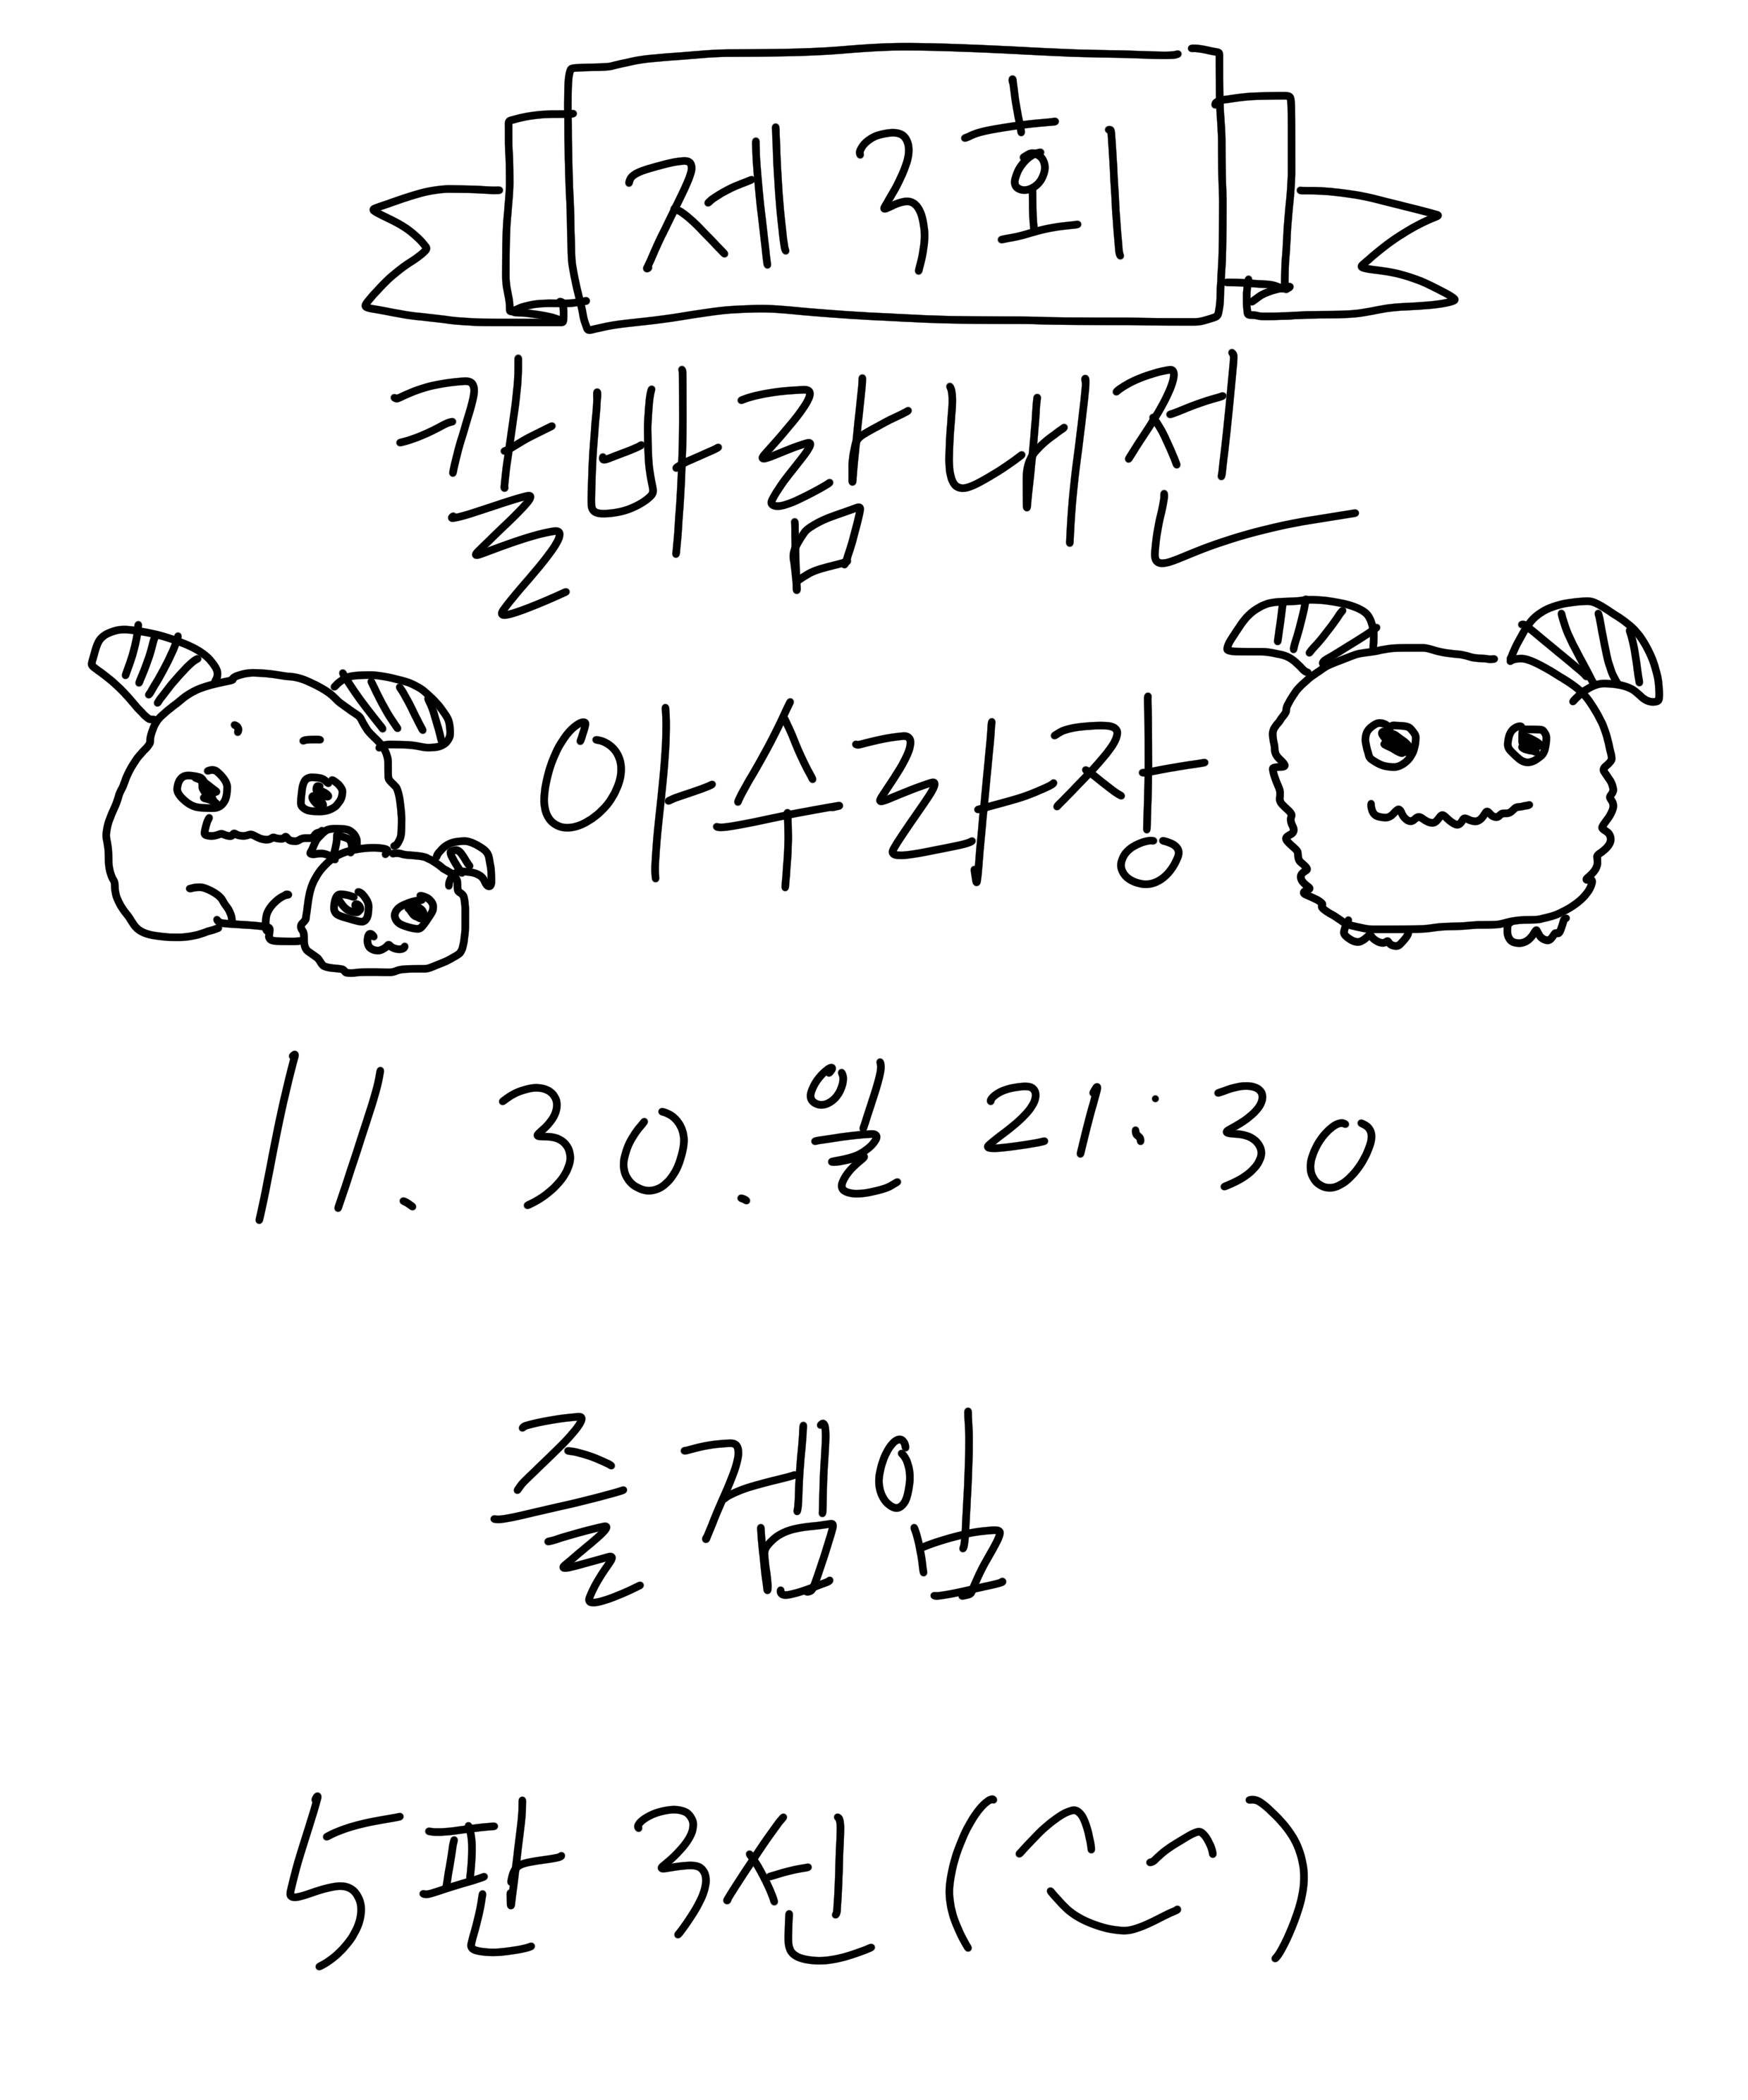 제 3 회
칼바람 내전
아수라장
11. 30. 일 21:30
즐겜만
5판 3선 (^‿^)